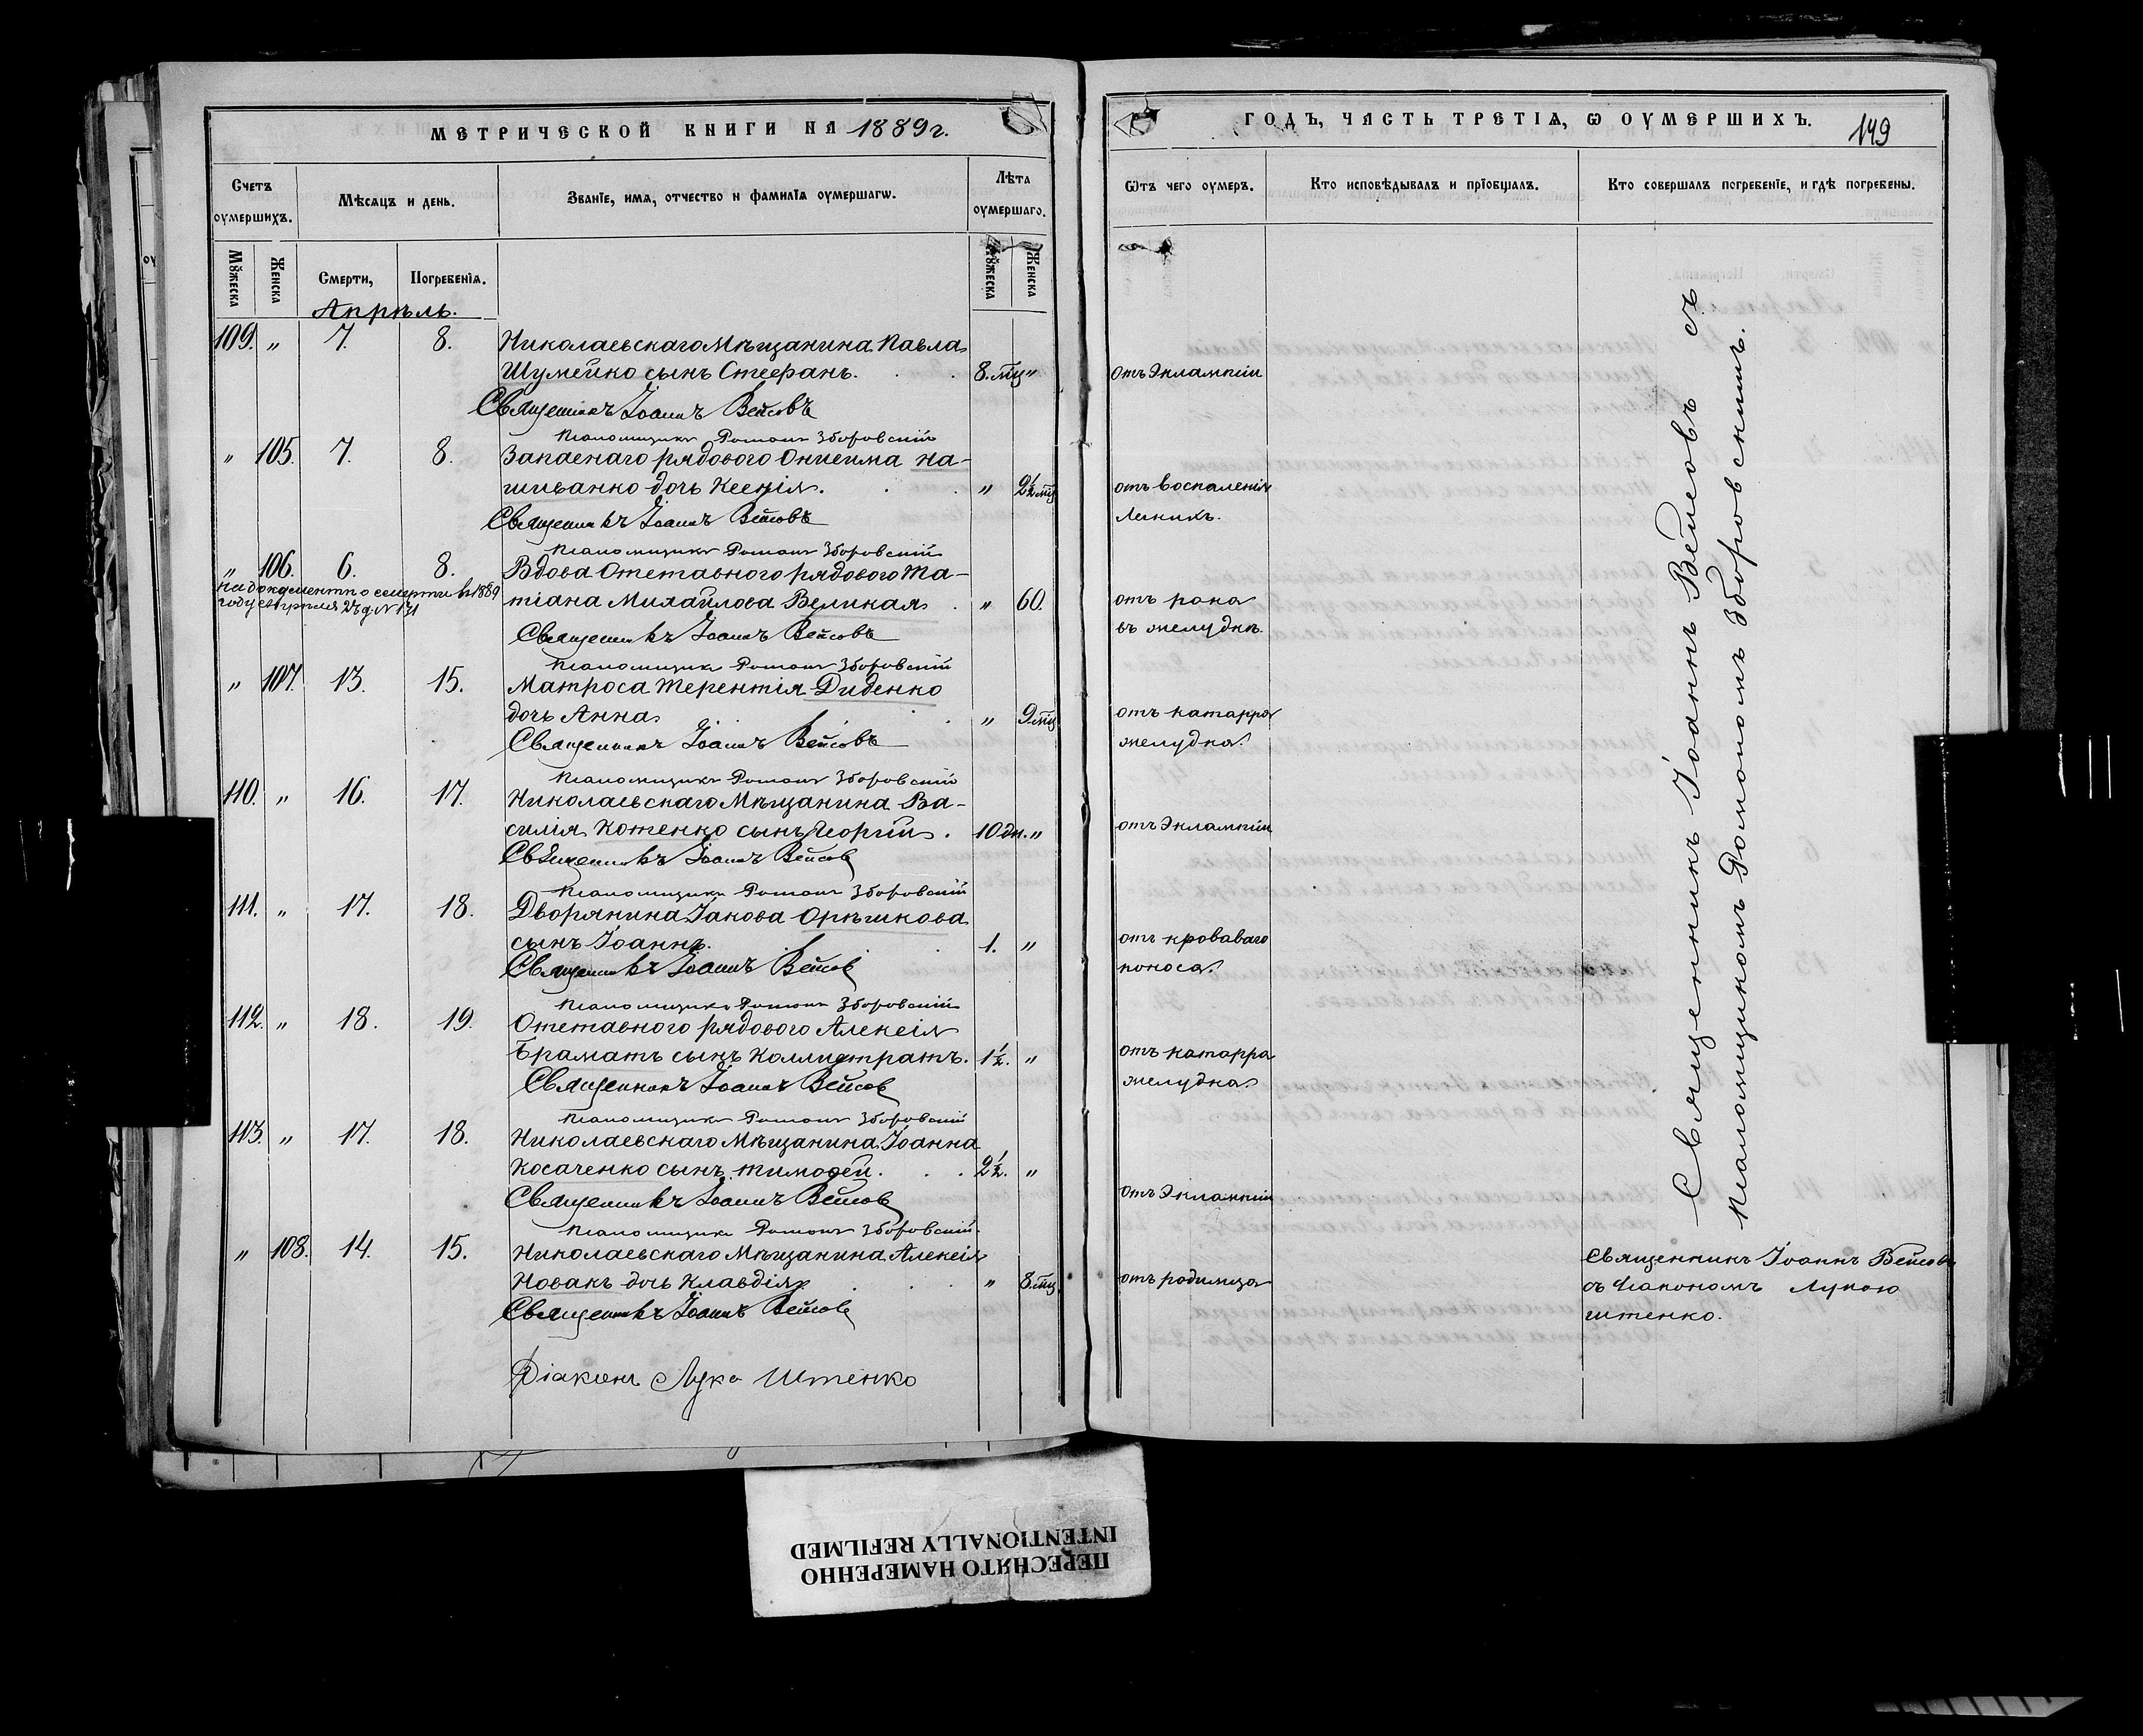 МЕТРИЧЕСКОЙ КНИГИ НА 1889 г.
Счетъ оумершихъ.
Мѣсяцъ и день.
Званїе, имя, отчество и фамилїа оумершагѡ.
Лѣта оумершаго.
Мꙋжеска
Женска
Смерти,
Погребенїя.
Мꙋжеска
Женска
Апрѣль.
109. " 7. 8. Николаевскаго Мѣщанина Павла
Шумейко сынъ Стефанъ. 8. мц "
Священникъ Іоаннъ Вейсовъ
Псаломщикъ Романъ Зборовскій
" 105. 7. 8. Запаснаго рядового Онисима На-
шиванко дочь Ксенія. " 2½ мц
Священникъ Іоаннъ Вейсовъ
Псаломщикъ Романъ Зборовскій
" 106. 6. 8. Вдова Отставного рядового Та-
тіана Михайлова Великая. " 60.
Священникъ Іоаннъ Вейсовъ
Псаломщикъ Романъ Зборовскій
" 107. 13. 15. Матроса Терентія Диденко
дочь Анна. " 9 мц
Священникъ Іоаннъ Вейсовъ
Псаломщикъ Романъ Зборовскій
110. " 16. 17. Николаевскаго Мѣщанина Ва-
силія Котенко сынъ Георгій. 10 дн. "
Священникъ Іоаннъ Вейсовъ
Псаломщикъ Романъ Зборовскій
111. " 17. 18. Дворянина Іакова Орѣшкова
сынъ Іоаннъ. 1. "
Священникъ Іоаннъ Вейсовъ
Псаломщикъ Романъ Зборовскій
112. " 18. 19. Отставного рядового Алексія
Брамать сынъ Каллистратъ. 1½. "
Священникъ Іоаннъ Вейсовъ
Псаломщикъ Романъ Зборовскій
113. " 17. 18. Николаевскаго Мѣщанина Іоанна
Косаченко сынъ Тимофей. 2½. "
Священникъ Іоаннъ Вейсовъ
Псаломщикъ Романъ Зборовскій.
" 108. 14. 15. Николаевскаго Мѣщанина Алексія
Новакъ дочь Клавдія. " 8. мц
Священникъ Іоаннъ Вейсовъ
Діаконъ Лука Штенко
ГОДЪ, ЧАСТЬ ТРЕТІА, Ѡ ОУМЕРШИХЪ.
149
Ѿтъ чего оумеръ.
Кто исповѣдывалъ и прїобщалъ.
Кто совершалъ погребенїе, и гдѣ погребены.
отъ Экламисіи
отъ воспаленія
легкихъ.
отъ рака
въ желудкѣ.
отъ катарра
желудка.
отъ Экламисіи
отъ кроваваго
поноса.
отъ катарра
желудка.
отъ Экламисіи
отъ родимца
Священникъ Іоаннъ Вейсовъ съ
Псаломщикомъ Романомъ Зборовскимъ.
Священникъ Іоаннъ Вейсовъ
съ Діакономъ Лукою
Штенко.
ПЕРЕСНЯТО НАМЕРЕННО
INTENTIONALLY REFILMED